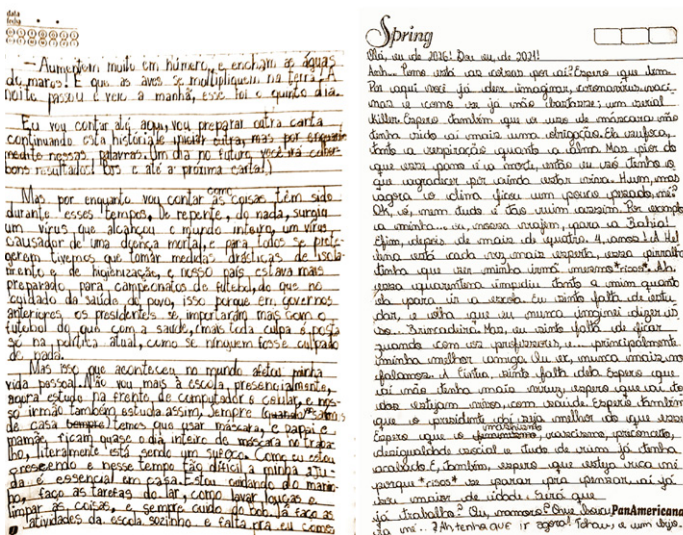 data
fecha
— Aumentem muito em número, e encham as águas
do mares! E que as aves se moltipliquem na terra! A
noite passou e veio a manhã, esse foi o quinto dia.
Eu vou contar até aqui, vou preparar outra carta
continuando esta história e iniciar outra, mas por enquanto
medite nessas palavras. Um dia no futuro, você irá colher
bons resultados! Bjs e até a próxima carta!)
Mas por enquanto vou contar como as coisas têm sido
durante esses tempos. De repente, do nada, surgiu
um vírus que alcançou o mundo inteiro, um vírus
causador de uma doença mortal, e para todos se prote-
gerem tivemos que tomar medidas drásticas de isola-
mento e de higienização, e nosso país estava mais
preparado, para campeonatos de futebol, do que no
cuidado da saúde do povo, isso porque em governos
anteriores, os presidentes se importaram mais com o
futobol do que com a saúde, (mais toda culpa é posta
só na política atual, como se ninguem fosse culpado
de nada.
Mas isso que aconteceu no mundo afetou minha
vida pessoal. Não vou mais à escola, presencialmente,
agora estudo na frente do computador e celular, e meu
irmão também estuda assim. Sempre (quando) saimos
de casa sempre) temos que usar máscara, e papai e
mamãe, ficam quase o dia inteiro de máscara no traba-
lho, literalmente está sendo um sufoco. Como eu estou
crescendo e nesse tempo tão difícil a minha aju-
da é essencial em casa. Estou cuidando do mani-
nho, faço as tarefas do lar, como lavar louças e
limpar as coisas, e sempre cuido do bob. Já faço as
atividades da escola sozinho e falta pra eu comes
Spring
Olá, eu de 2026! Sou eu, de 2021!
Aah... Como está as coisas por aí? Espero que bem.
Por aqui você já deve imaginar, coronavírus, vaci-
nas e como se já não bastasse; um serial
Killer. Espero também que o uso de máscara não
tenha virado aí mais uma obrigação. Ela sufoca,
tanto a respiração quanto a alma. Mas pior do
que usar pano é a morte, então eu só tenho o
que agradecer por ainda estar viva. Huum, mas
agora o clima ficou um pouco pesado, né?
Ok, é, nem tudo é tão ruim assim. Por exemplo
a minha... eu, nossa viajem, para a Bahia!
Efim, depois de mais de quatro. 4, anos! A He-
lena está cada vez mais esperta, essa pirralha
tinha que ser minha irmã mesmo *risos*. Ah,
essa quarentena impediu tanto a mim quanto
ela para ir a escola. Eu sinto falta de estu-
dar, e olha que eu nunca imaginei diger is
so... Brincadeira. Mas, eu sinto falta de ficar
zuando com os professores, e... principalmente
minha melhor amiga. Ou ex, nunca mais nos
falamos. A Cintia, sinto falta dela. Espero que
aí não tenha mais vírus, espero que aí to-
dos estejam vivos, com saúde. Espero também
que o presidente daí seja melhor do que esse.
Espero que o machismo, racismo, preconceito,
desigualdade social e tudo de ruim já tenha
acabado. E, também, espero que esteja rica né
porque *risos* se parar pra pensar, aí já
sou maior de idade. Será que
já trabalho? Ou, namoro? Que loucu
ra né... Ah tenho que ir agora! Tchau, e um bijo.
PanAmericana